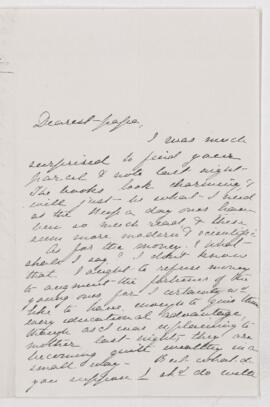 Dearest papa,
I was much
surprised to find your
parcel & note last night.
The books look charming &
will just be what I need
as the step a day ones have
been so much read & these
seem more modern & scientific.
As for the money. What
should I say? I don't know
that I ought to refuse money
to augment the fortunes of the
young ones for I certainly wd.
like to have enough to give them
every educational advantage,
though as I was explaining to
mother last night, they are
becoming quite wealthy in a
small way. But what do
you suppose I shd do with